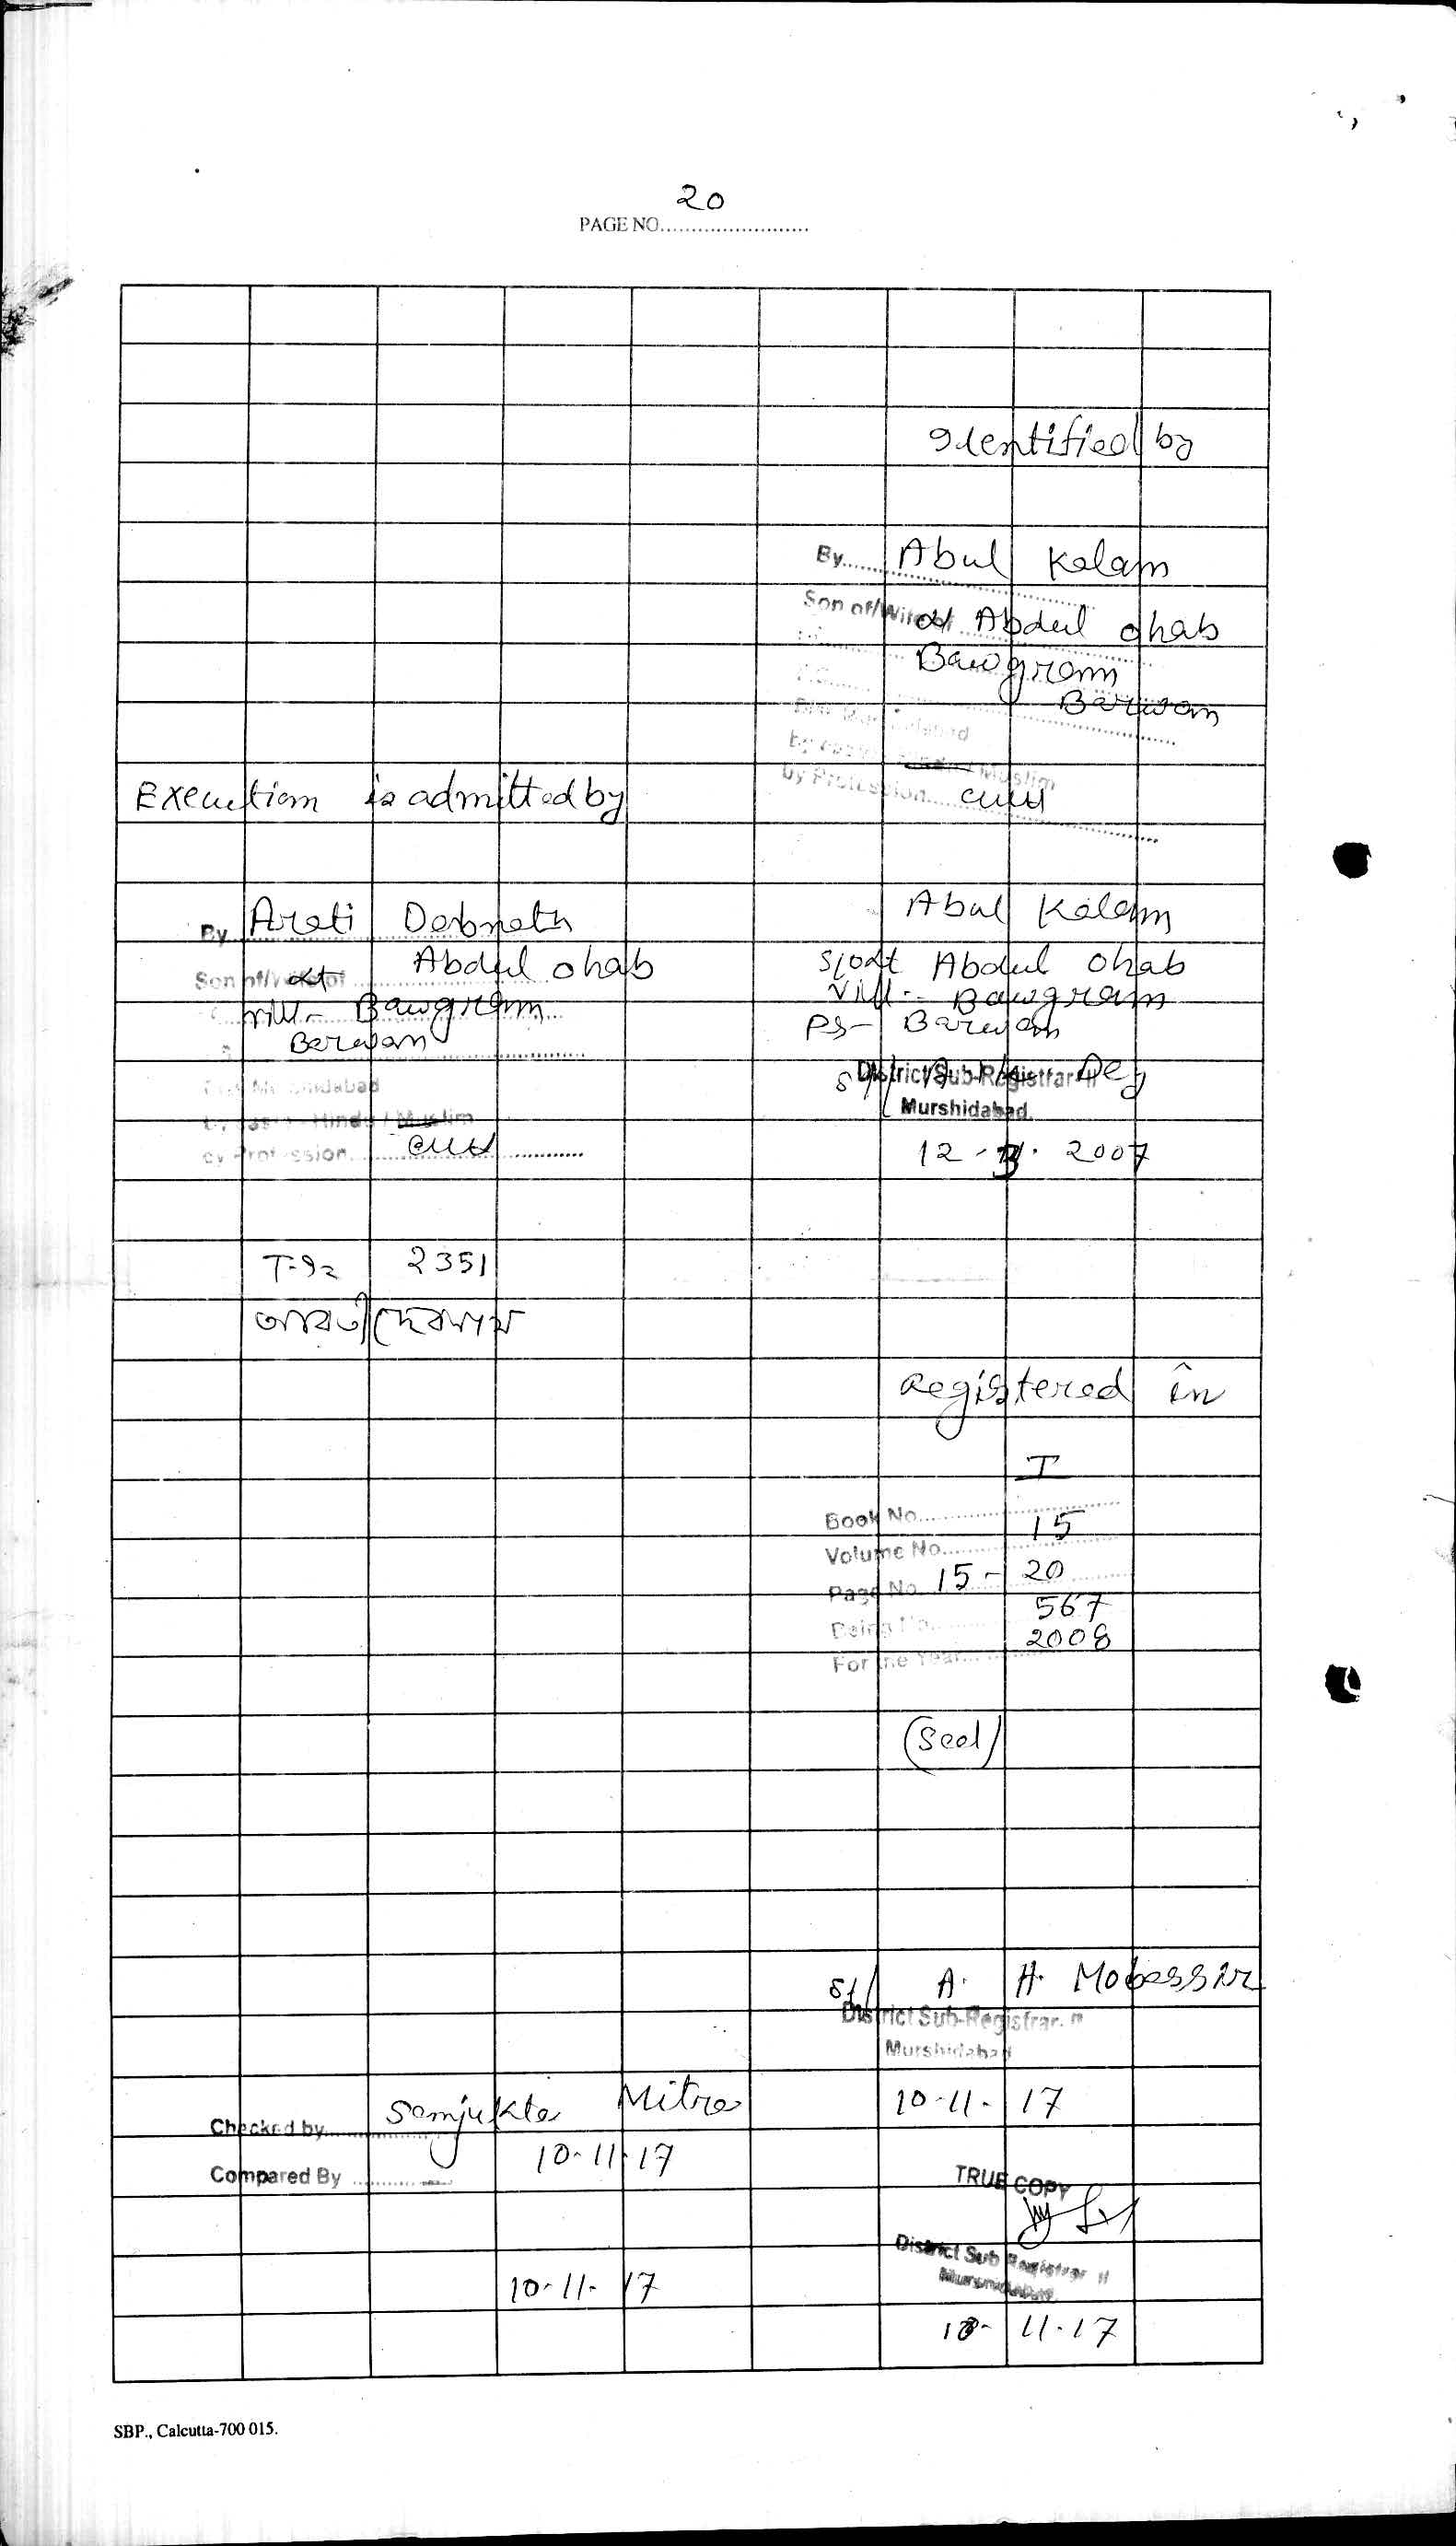 20
PAGE NO.........................
Identified by
By Abul Kalam
Son of/Wife of Abdul Ohab
Bawgram
Barwan
Muslim
by Profession
Execution is admitted by
By Arati Debnath
Son of/Wife of Abdul Ohab
vill- Bawgram
Barwan
Dist Murshidabad
by caste Hindu / Muslim
by Profession
T.I. 2351
আরতী দেবনাথ
Abul Kalam
S/o Lt Abdul Ohab
Vill- Bawgram
PS- Barwan
Sd/ Dey
District Sub-Registrar-II
Murshidabad.
12-3-2007
Registered in
Book No. I
Volume No. 15
Page No. 15-20
Being No. 567
For the Year 2008
(Seal)
Sd/ A. H. Mobassir
District Sub-Registrar. II
Murshidabad
10-11-17
Checked by Samjukta Mitra
10-11-17
Compared By
10-11-17
TRUE COPY
District Sub Registrar II
Murshidabad.
10-11-17
SBP., Calcutta-700 015.